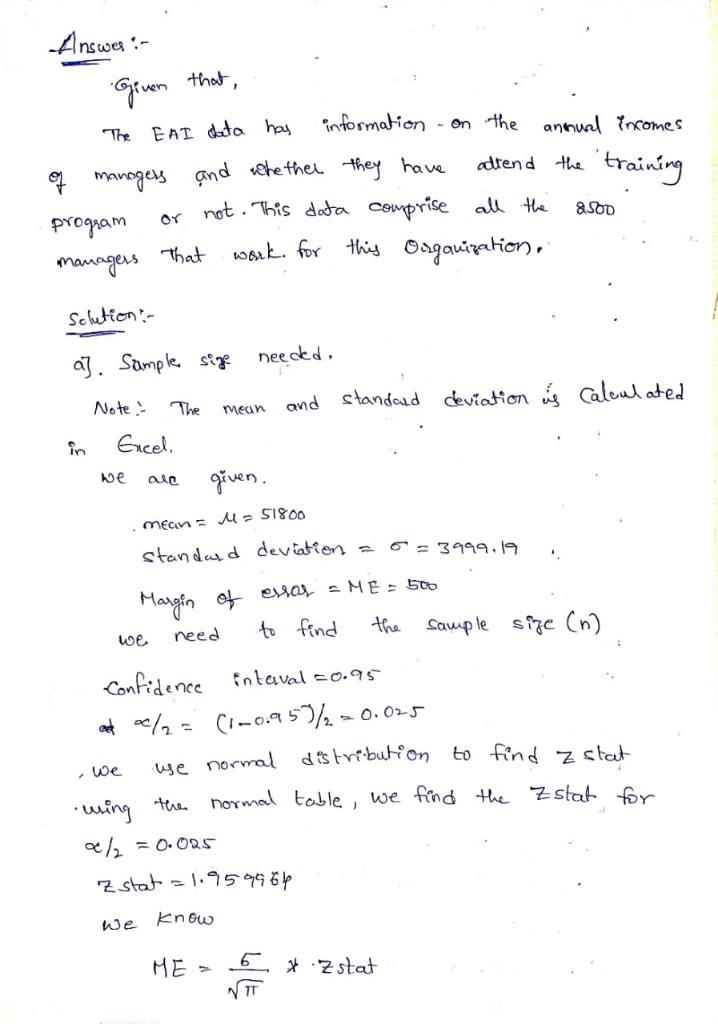 Answer :-
Given that,
The EAI data has information - on the annual incomes
of managers and whether they have attend the training
program or not. This data comprise all the 2500
managers That work for this Organization.
Solution :-
a]. Sample size needed.
Note :- The mean and standard deviation is Calculated
in Excel.
we are given.
mean = μ = 51800
standard deviation = σ = 3999.19
Margin of error = ME = 500
we need to find the sample size (n)
Confidence interval = 0.95
α/2 = (1-0.95)/2 = 0.025
we use normal distribution to find z stat
using the normal table, we find the Z stat for
α/2 = 0.025
z stat = 1.959964
we know
ME = σ/√n * Z stat